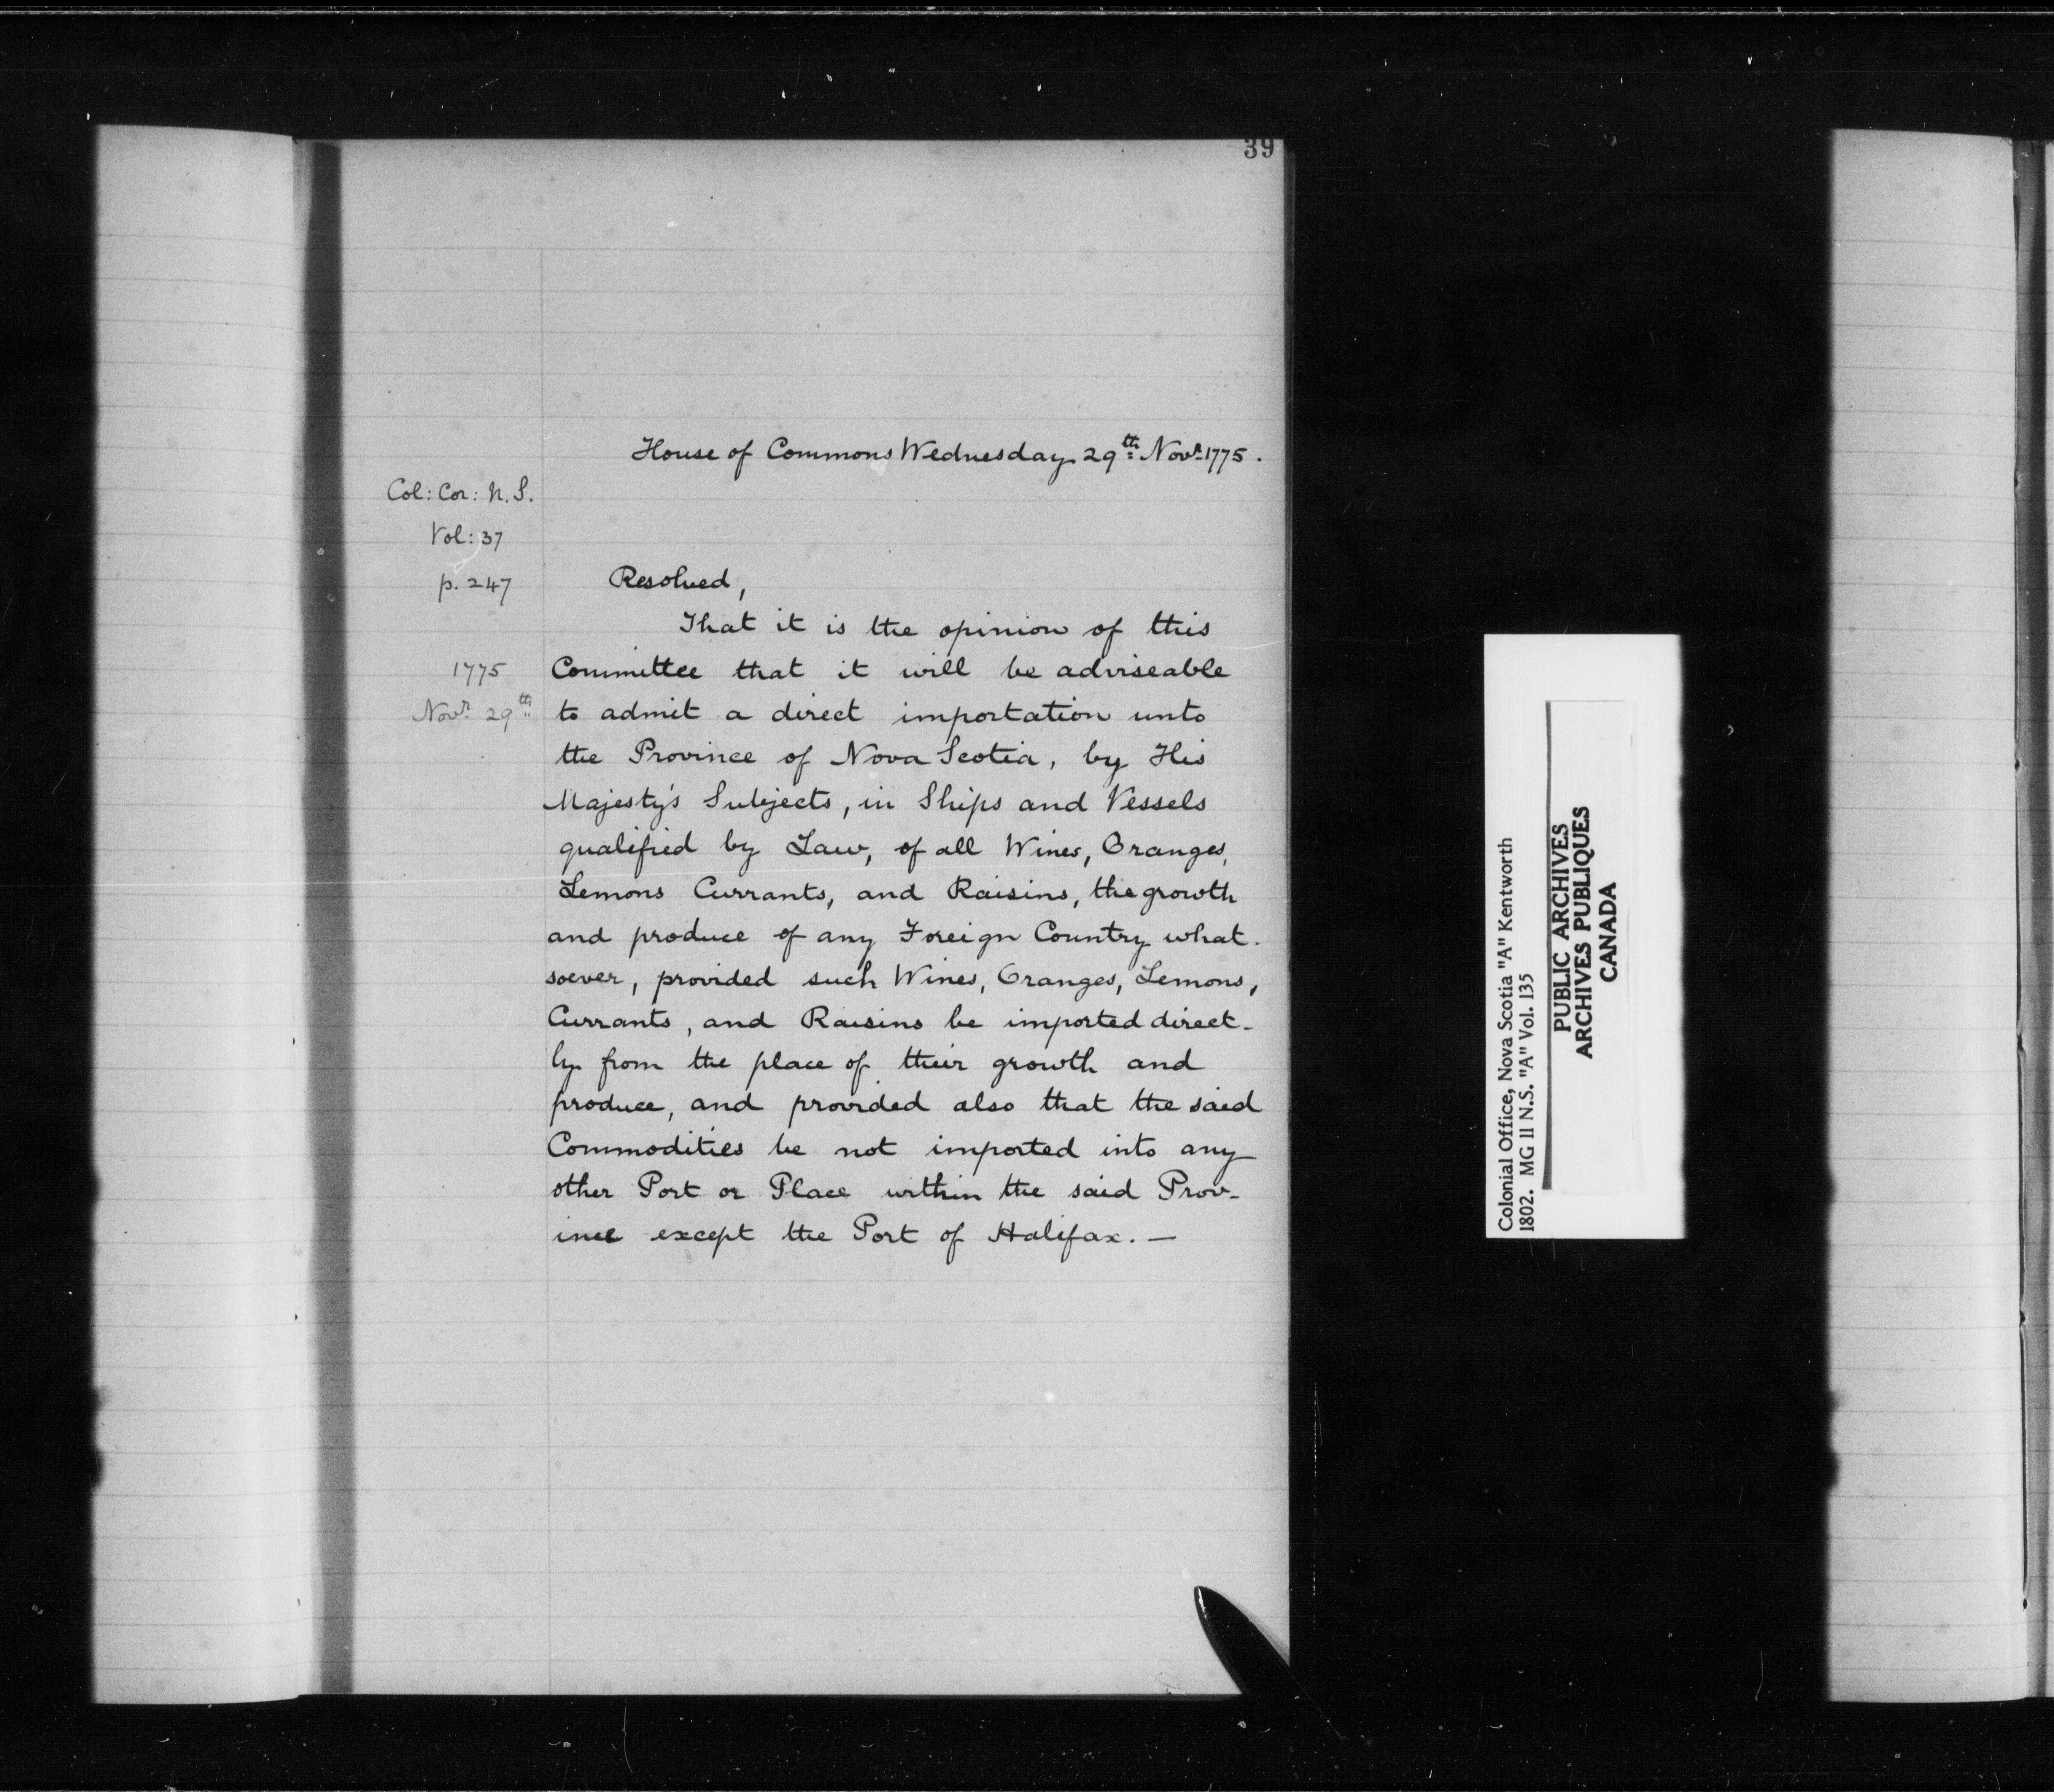 39
House of Commons Wednesday 29th Novr. 1775.
Col: Cor: N.S.
Vol: 37
p. 247
1775
Novr. 29th
Resolved,
That it is the opinion of this
Committee that it will be adviseable
to admit a direct importation unto
the Province of Nova Scotia, by His
Majesty's Subjects, in Ships and Vessels
qualified by Law, of all Wines, Oranges,
Lemons Currants, and Raisins, the growth
and produce of any Foreign Country what-
soever, provided such Wines, Oranges, Lemons,
Currants, and Raisins be imported direct-
ly from the place of their growth and
produce, and provided also that the said
Commodities be not imported into any
other Port or Place within the said Prov-
ince except the Port of Halifax. —
Colonial Office, Nova Scotia "A" Kentworth
1802. MG 11 N.S. "A" Vol. 135
PUBLIC ARCHIVES
ARCHIVES PUBLIQUES
CANADA